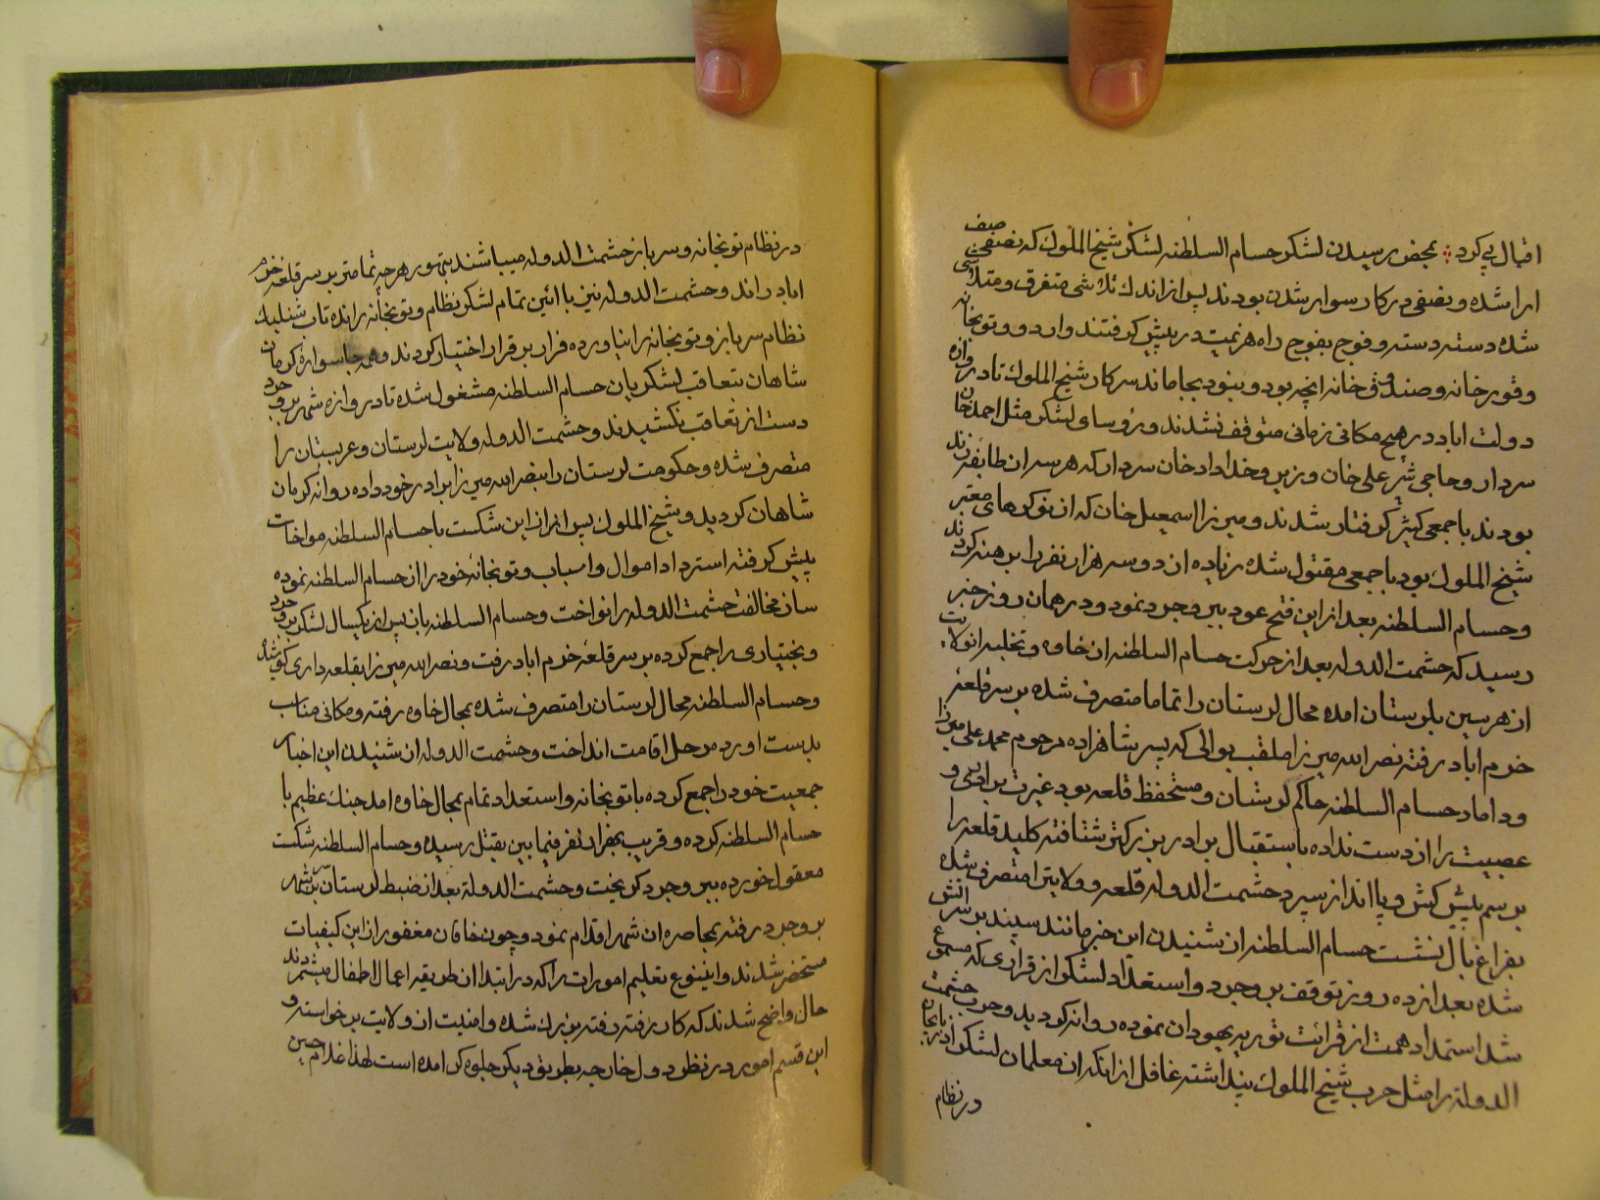 اقبال پی کرد ؞ بمحض رسیدن لشکر حسام السلطنه لشکر شیخ الملوک که نصفی صیف
ارا شده و نصفی در کار سوار شدن بودند پس از اندک تلاشی متفرق و متلاشی
شده دسته دسته و فوج بفوج راه هزیمت در پیش گرفتند و اردو و توپخانه
و قورخانه و صندوقخانه انچه بود و نبود بجا ماند سرکار شیخ الملوک تا دروازه
دولت اباد در هیچ مکانی زمانی متوقف نشدند و رؤسای لشکر مثل احمد خان
سردار و حاجی شیر علی خان وزیر و خداداد خان سردار که هر سه از طایفه زند
بودند با جمعی کثیر گرفتار شدند و میرزا اسمعیل خان که از نوکرهای معتبر
شیخ الملوک بود با جمعی مقتول شده زیاده از دو سه هزار نفر را برهنه کردند
و حسام السلطنه بعد از این فتح عود ببروجرد نمود و در همان روز خبر
رسید که حشمت الدوله بعد از حرکت حسام السلطنه از خاوه و تخلیه انولایت
از هرسین بلرستان امده محال لرستان را تماما متصرف شده بر سر قلعه
خرم اباد رفته نصر الله میرزا ملقب بوالی که پسر شاهزاده مرحوم محمد علی میرزا
و داماد حسام السلطنه حاکم لرستان و مستحفظ قلعه بود غیرت برادری و
عصبیت را از دست نداده باستقبال برادر بزرگتر شتافته کلید قلعه را
برسم پیش کش و پا انداز سپرد حشمت الدوله قلعه و ولایت را متصرف شده
بفراغ بال نشست حسام السلطنه از شنیدن این خبر مانند سپند بر سر اتش
شده بعد از ده روز توقف بروجرد و استعداد لشکر از قراری که مسموع
شد استمداد همت از قرائت توریه یهودان نموده روانه گردید و حرب حشمت
الدوله را مثل حرب شیخ الملوک پنداشته غافل از انکه از معلمان لشکر اذربایجان
در نظام
در نظام توپخانه و سرباز حشمت الدوله میباشند بتهور هر چه تمامتر بر سر قلعه خرم
اباد راند و حشمت الدوله نیز با ائین تمام لشکر نظام و توپخانه رانده تاب شلیک
نظام سرباز و توپخانه را نیاورده فرار بر قرار اختیار کردند و همه جا سواره کرمان
شاهان بتعاقب لشکریان حسام السلطنه مشغول شده تا دروازه شهر بروجرد
دست از تعاقب نکشیدند و حشمت الدوله ولایت لرستان و عربستان را
متصرف شده و حکومت لرستان را بنصر الله میرزا برادر خود داده روانه کرمان
شاهان گردید و شیخ الملوک پس از این شکست با حسام السلطنه مواخات
پیش گرفته استرداد اموال و اسباب و توپخانه خود را از حسام السلطنه نموده
ساز مخالفت حشمت الدوله را نواخت و حسام السلطنه باز پس از یکسال لشکر بروجرد
و بختیاری را جمع کرده بر سر قلعه خرم اباد رفت و نصر الله میرزا بقلعه داری کوشید
و حسام السلطنه محال لرستان را متصرف شده بمحال خاوه رفته و مکانی مناسب
بدست اورد مرحل اقامت انداخت و حشمت الدوله از شنیدن این اخبار
جمعیت خود را جمع کرده با توپخانه و استعداد تمام بمحال خاوه امد جنک عظیم با
حسام السلطنه کرده و قریب بهزار نفر فیما بین بقتل رسیده و حسام السلطنه شکست
معقول خورده ببروجرد گریخت و حشمت الدوله بعد از ضبط لرستان بر سر شهر
بروجرد رفته بمحاصره ان شهر اقدام نمود و چون خاقان مغفور از این کیفیات
مستحضر شدند و اینوع تعلیم امورات را که در ابتدا از طریقه اعمال اطفال میشمردند
حال واضح شدند که کار رفته رفته بزرک شده و امنیت از ولایت برخواسته و
این قسم امور در نظر دول خارجه بطریق دیگر جلوه گر امده است لهذا غلام حسین